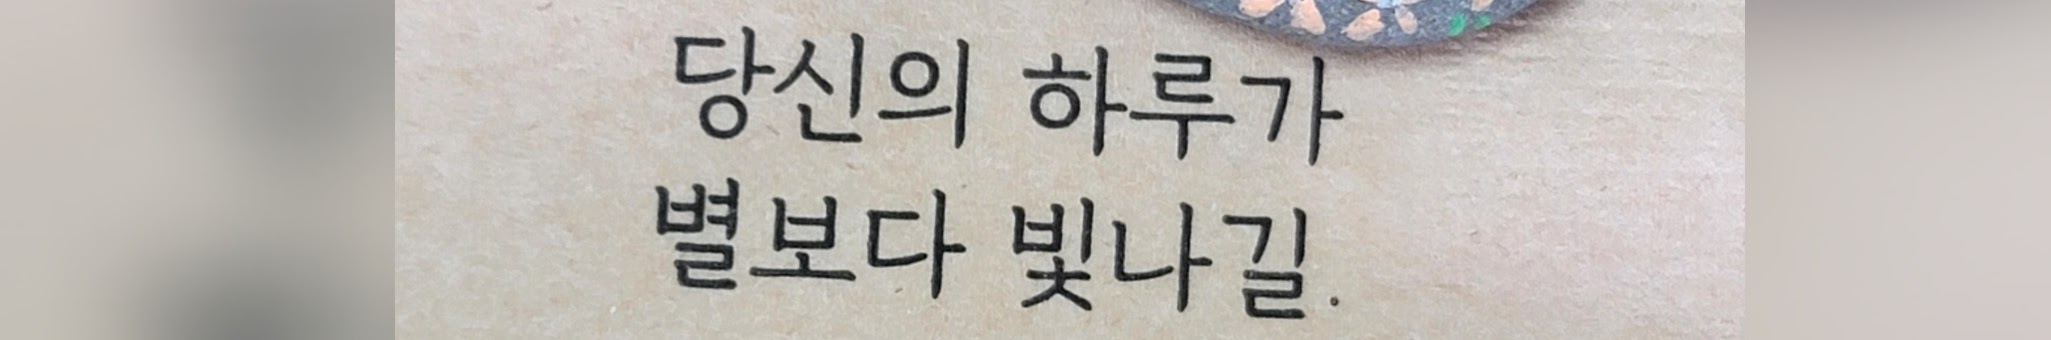 당신의 하루가
별보다 빛나길.